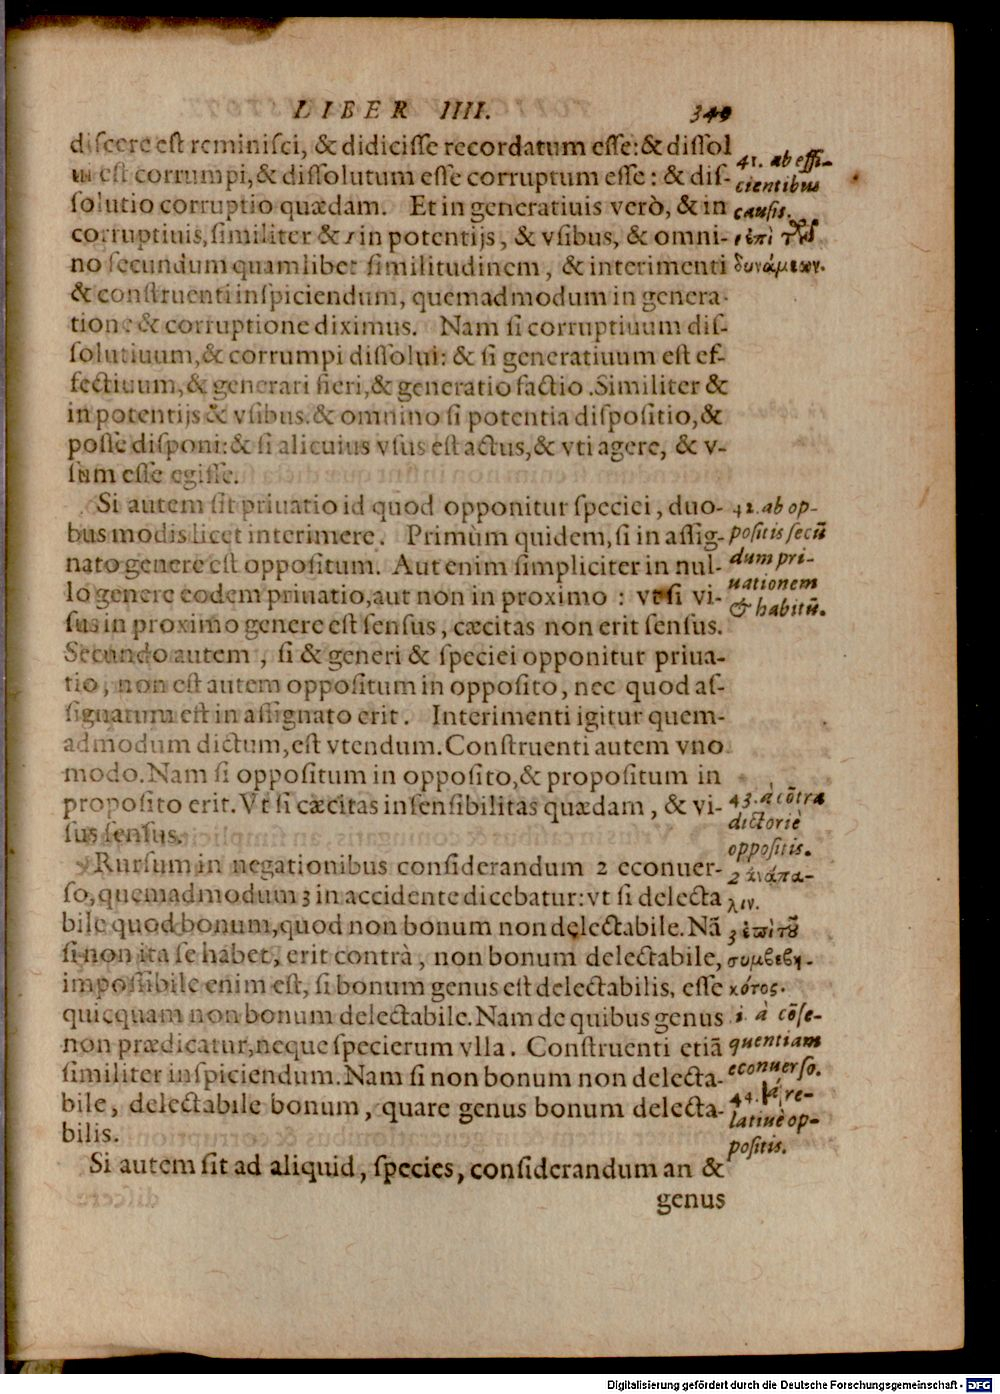 LIBER IIII. 340
discere est reminisci, & didicisse recordatum esse: & dissol
ui est corrumpi, & dissolutum esse corruptum esse: & dis-
solutio corruptio quædam. Et in generatiuis verò, & in
corruptiuis, similiter & 1 in potentijs, & vsibus, & omni-
no secundum quamlibet similitudinem, & interimenti
& construenti inspiciendum, quemadmodum in genera-
tione & corruptione diximus. Nam si corruptiuum dis-
solutiuum, & corrumpi dissolui: & si generatiuum est ef-
fectiuum, & generari fieri, & generatio factio. Similiter &
in potentijs & vsibus. & omnino si potentia dispositio, &
posse disponi: & si alicuius vsus est actus, & vti agere, & v-
sum esse egisse.
Si autem sit priuatio id quod opponitur speciei, duo-
bus modis licet interimere. Primùm quidem, si in assig-
nato genere est oppositum. Aut enim simpliciter in nul-
lo genere eodem priuatio, aut non in proximo : vt si vi-
sus in proximo genere est sensus, cæcitas non erit sensus.
Secundo autem, si & generi & speciei opponitur priua-
tio, non est autem oppositum in opposito, nec quod as-
signatum est in assignato erit. Interimenti igitur quem-
admodum dictum, est vtendum. Construenti autem vno
modo. Nam si oppositum in opposito, & propositum in
proposito erit. Vt si cæcitas insensibilitas quædam, & vi-
sus sensus.
Rursum in negationibus considerandum 2 econuer-
so, quemadmodum 3 in accidente dicebatur: vt si delecta
bile quod bonum, quod non bonum non delectabile. Nã
si non ita se habet, erit contrà, non bonum delectabile,
impossibile enim est, si bonum genus est delectabilis, esse
quicquam non bonum delectabile. Nam de quibus genus
non prædicatur, neque specierum vlla. Construenti etiã
similiter inspiciendum. Nam si non bonum non delecta-
bile, delectabile bonum, quare genus bonum delecta-
bilis.
Si autem sit ad aliquid, species, considerandum an &
genus
41. ab effi-
cientibus
causis.
1 ἐπὶ τῶν
δυνάμεων.
42. ab op-
positis secũ
dum pri-
uationem
& habitũ.
43. à cõtra
dictoriè
oppositis.
2 ἀνάπα-
λιν.
3 ἐπὶ τοῦ
συμβεβη-
κότος.
i. à cõse-
quentiam
econuerso.
44. à re-
latiuè op-
positis.
Digitalisierung gefördert durch die Deutsche Forschungsgemeinschaft - DFG